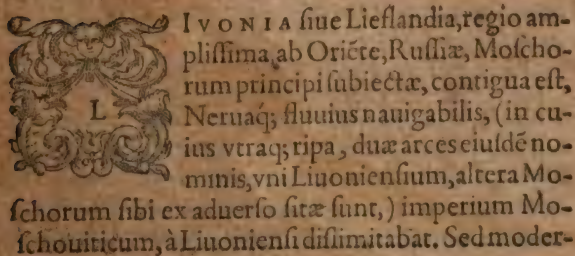 LIVONIA siue Lieflandia, regio am-
plissima, ab Oriẽte, Russiæ, Moscho-
rum principi subiectæ, contigua est,
Neruaq́; fluuius nauigabilis, (in cu-
ius vtraq; ripa, duæ arces eiusdẽ no-
minis, vni Liuoniensium, altera Mo-
schorum sibi ex aduerso sitæ sunt,) imperium Mo-
schouiticum, à Liuoniensi dissimitabat. Sed moder-